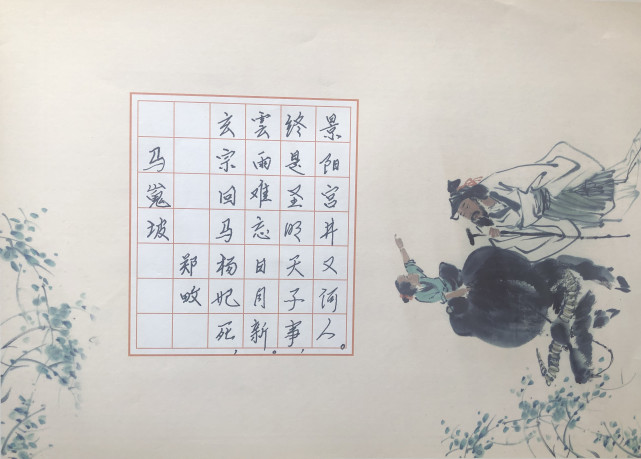 马嵬坡
郑畋
玄宗回马杨妃死，
雲雨难忘日月新。
终是圣明天子事，
景阳宫井又何人。